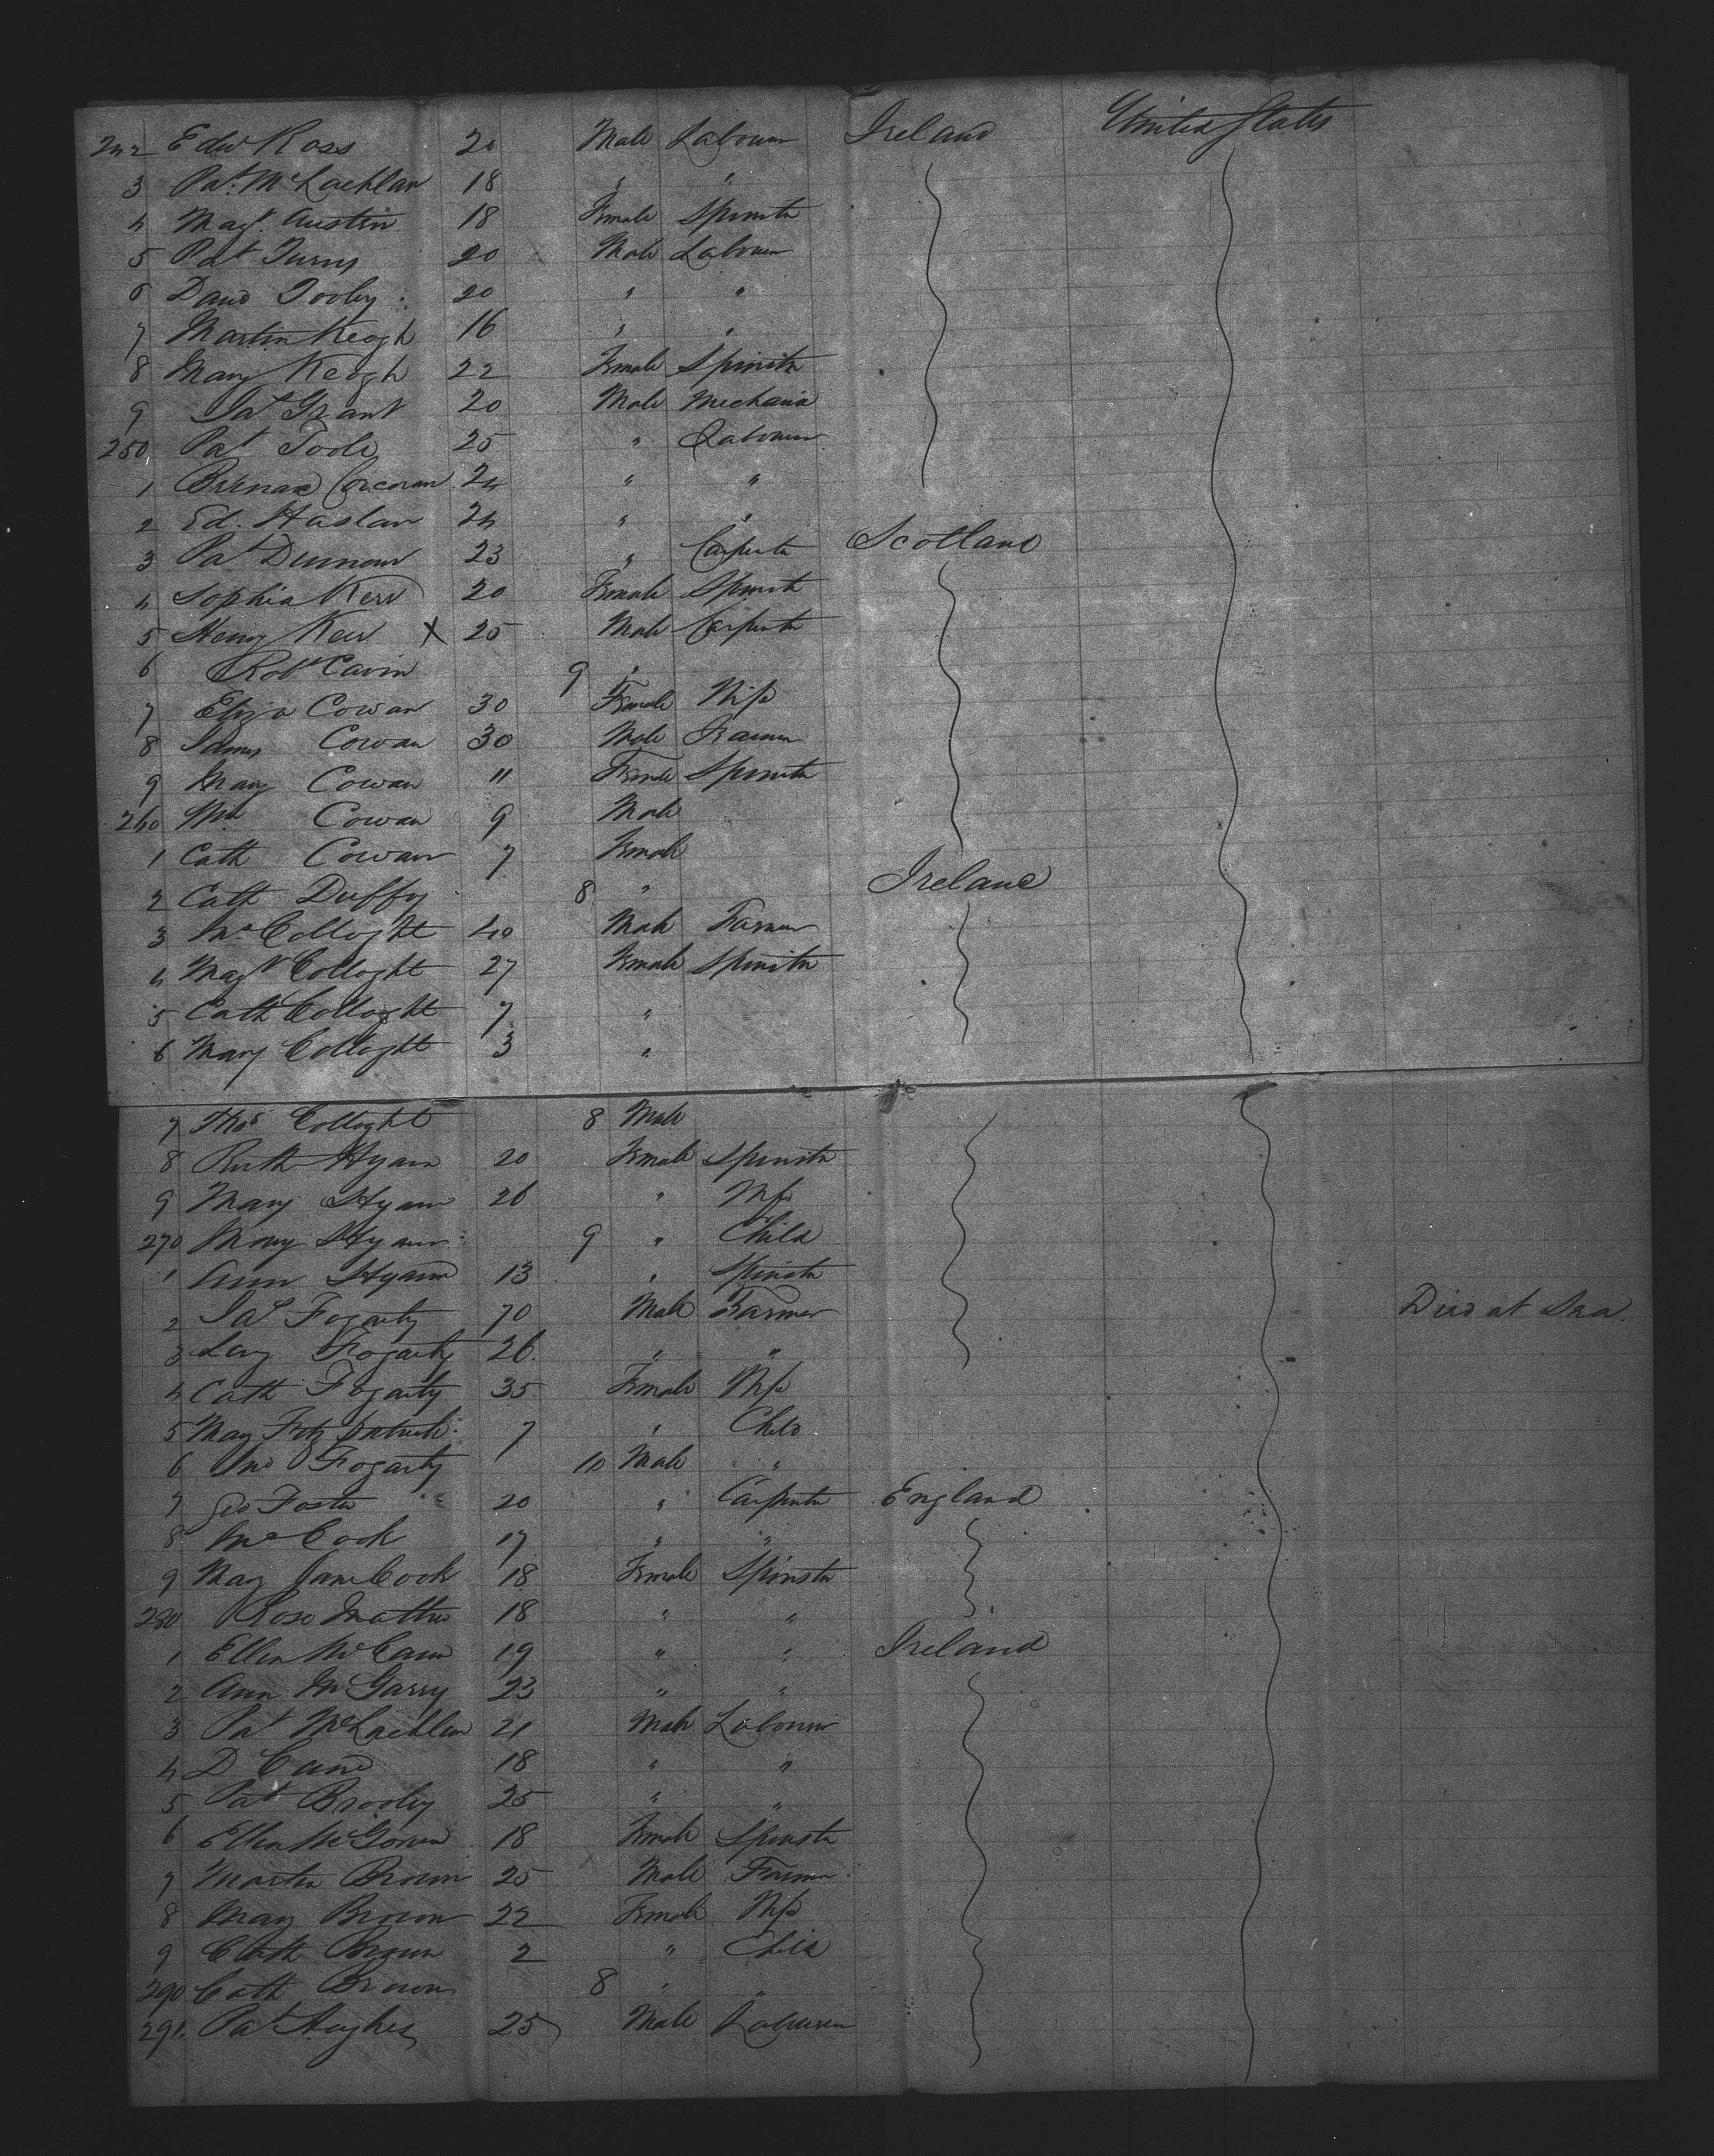 242 Edwd Ross 20 Male Labourer Ireland United States
3 Pat. McLachlan 18 " "
4 Magt. Austin 18 Female Spinster
5 Pat 20 Male Labourer
6 David Tooley 20 " "
7 Martin Keogh 16 " "
8 Mary Keogh 22 Female Spinster
9 Jas Grant 20 Male Mechanic
250 Pat Toole 25 " Labourer
1 Bernard Corcoran 24 " "
2 Ed. Haslan 24 " "
3 Pat 23 " Carpenter Scotland
4 Sophia Kerr 20 Female Spinster
5 Henry Kerr X 25 Male Carpenter
6 Robt Cavin 9 "
7 Eliza Cowan 30 Female Wife
8 James Cowan 30 Male Farmer
9 Mary Cowan 11 Female Spinster
260 Wm Cowan 9 Male
1 Cath Cowan 7 Female
2 Cath Duffy 8 " Ireland
3 Colloght 40 Male Farmer
4 Magt Colloght 27 Female Spinster
5 Cath Colloght 7 "
6 Mary Colloght 3 "
7 Thos Colloght 8 Male
8 Ruth Hyam 20 Female Spinster
9 Mary Hyam 26 " Wife
270 Mary Hyam 9 " Child
1 Ann Hyam 13 " Spinster
2 Jas Fogarty 70 Male Farmer Died at Sea.
3 Fogarty 26 " "
4 Cath Fogarty 35 Female Wife
5 May Fitzpatrick 7 " Child
6 Jno Fogarty 10 Male "
7 Geo Foster 20 " Carpenter England
8 Cook 17 " "
9 May Jane Cook 18 Female Spinster
280 Rose Mathew 18 " "
1 Ellen McCann 19 " " Ireland
2 Ann McGarry 23 " "
3 Pat McLachlan 21 Male Labourer
4 D 18 " "
5 Pat Brooley 25 " "
6 Ellen McGowen 18 Female Spinster
7 Martin Brown 25 Male Farmer
8 May Brown 22 Female Wife
9 Cath Brown 2 " Child
290 Cath Brown 8 " "
291. Pat Hughes 25 Male Labourer